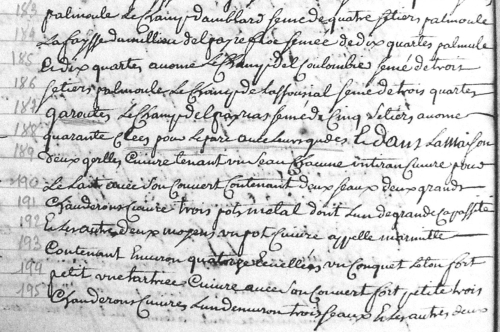 183 palmoule Le Champ damblard semé de quatre setiers palmoule
184 La faysse du millieu del payre semée de dix quartes palmoule
185 Et dix quartes avome Le Champ del Coulombié semé de trois
186 setiers palmoule Le Champ de La semé de trois quartes
187 garoutes Le Champ del semé de Cinq setiers avome
188 quarante Clees pour Le parc avec Leurs Et dans La maison
189 deux Cuivre tenant un seau Chacune Cuivre pour
190 Le Lait avec son Couvert Contenant deux seaux deux grands
191 Chauderons Cuivre trois pots metal dont Lun de grande Capassité
192 Et Les autres deux moyens un pot Cuivre appellé marmitte
193 Contenant Environ quatorze Ecuelles un Conquet Leton fort
194 petit une tartiere Cuivre avec son Couvert fort petite trois
195 Chauderons Cuivres Lun denviron trois seaux Et Les autres deux